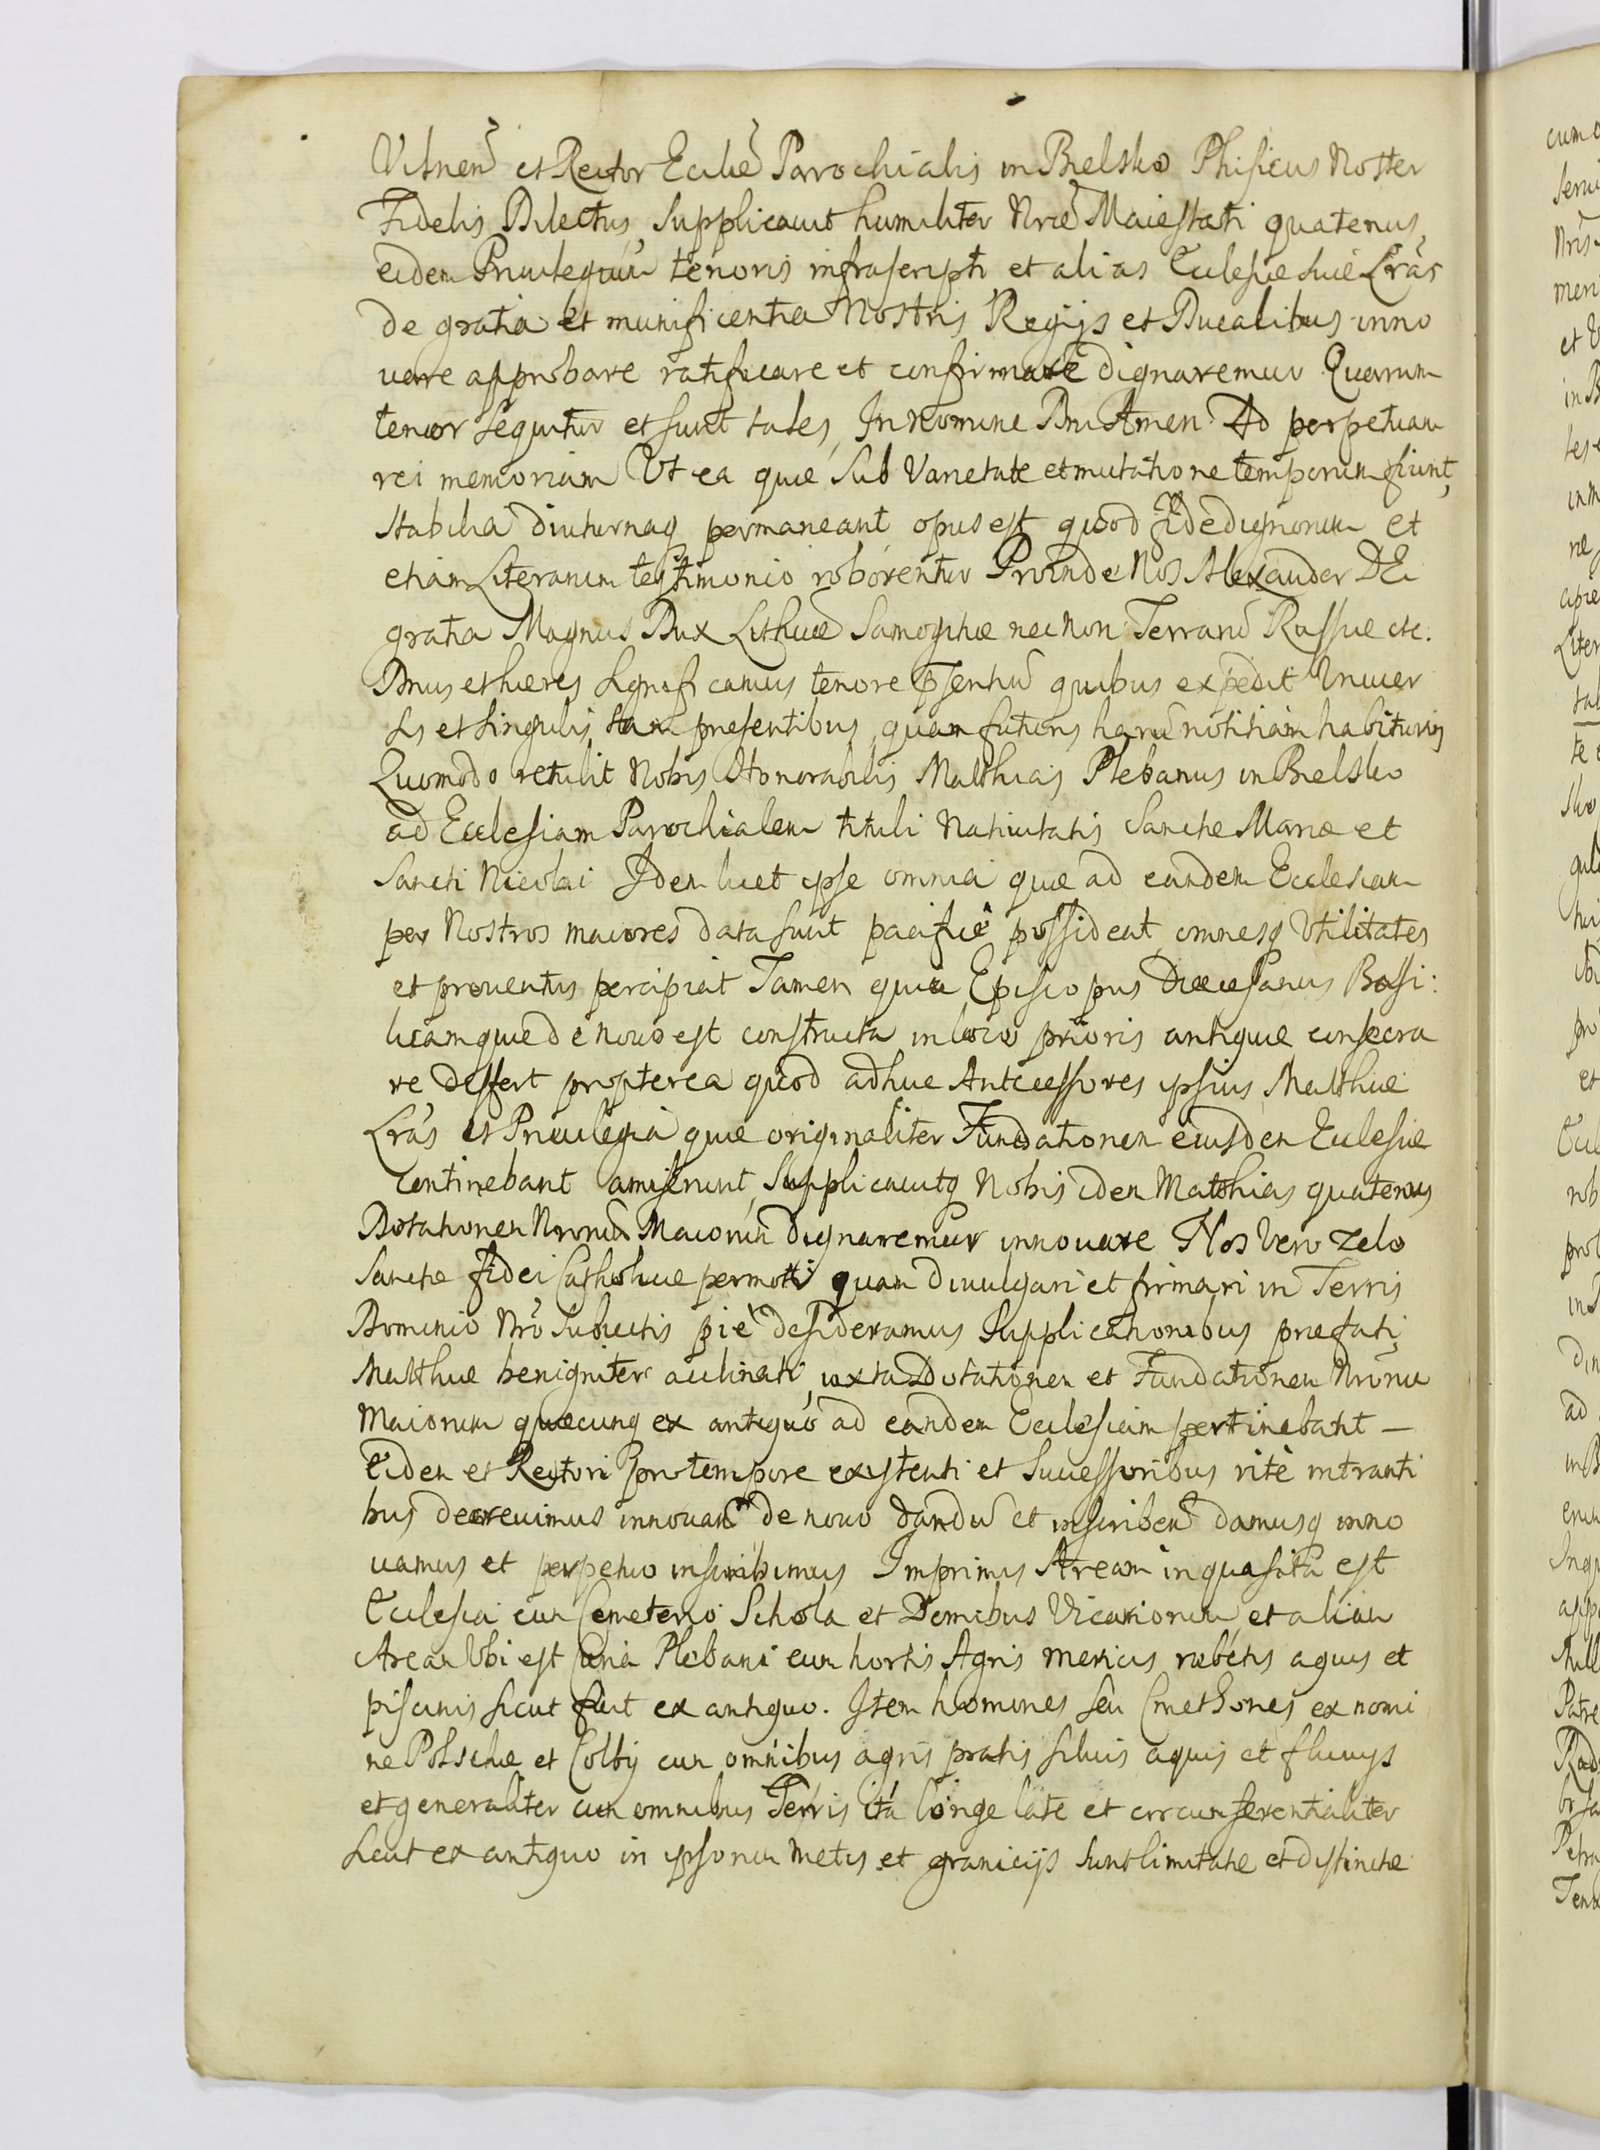 Vilnen̄ et Rector Eccliē Parochialis in Bielsko Phisicus Noster
Fidelis Dilectus, Supplicauit humiliter Nrāe Maiestati quatenus
eidem Priuilegium tenoris infrascripti et alias Ecclesiæ suæ Lrās
de gratia et munificentia Nostris Regijs et Ducalibus inno
uare approbare ratificare et confirmare dignaremur Quarum
tenor sequitur et sunt tales, In Nomine Dni Amen Ad perpetuam
rei memoriam Vt ea quæ sub Varietate et mutatione temporum fiunt,
stabilia diuturnaq permaneant opus est quod fidedignorum et
etiam Literarum testimonio roborentur Proinde Nos Alexander DEi
gratia Magnus Dux Lithuæ Samogitiæ nec Non Terrarū Russiæ etc.
Dnus et hæres significamus tenore p̄sentiū quibus expedit Vniuer
sis et singulis tam presentibus quam futuris harū notitiam habituris
Quomodo retulit Nobis Honorabilis Matthias Plebanus in Bielsko
ad Ecclesiam Parochialem tituli Natiuitatis Sanctæ Mariæ et
Sancti Nicolai Idem licet ipse omnia quæ ad eandem Ecclesiam
per Nostros maiores data sunt pacificè possideat omnesq Vtilitates
et prouentus percipiat Tamen quia Episcopus Diæcesanus Bassi:
licam quæ de nouo est constructa in loco prioris antiquæ consecra
re differt propterea quod adhuc Antecessores ipsius Matthiæ
Lrās et Priuilegia quæ originaliter Fundationem eiusdem Ecclesiæ
Continebant amiserunt, Supplicauitq Nobis idem Matthias quatenus
Dotationem Nrorum Maiorum dignaremur innouare Nos Vero zelo
Sanctæ fidei Catholicæ permoti quam diuulgari et firmari in Terris
Dominio Nrō Subiectis piè desideramus Supplicationibus præfati
Matthiæ benigniter acclinati, iuxta Dotationem et Fundationem Nrōru
Maiorum quæcunq ex antiquo ad eandem Ecclesiam pertinebant —
Eidem et Rectori pro tempore existenti et Successoribus ritè intranti
bus decreuimus innouan̄ de nouo dandū et inscriben̄ damusq inno
uamus et perpetuo inscribimus Imprimis Aream in qua sita est
Ecclesia cum Cemeterio Schola et Domibus Vicariorum et aliam
Aream Vbi est Curia Plebani cum hortis Agris mericis rubetis aquis et
piscinis sicut fuit ex antiquo. Item homines seu Cmethones ex nomi
ne Potsche et Colby cum omnibus agris pratis siluis aquis et fluuijs
et generaliter cum omnibus Terris ità longe latè et circumferentialiter
sicut ex antiquo in ipsorum metis et granicijs sunt limitatæ et distinctæ